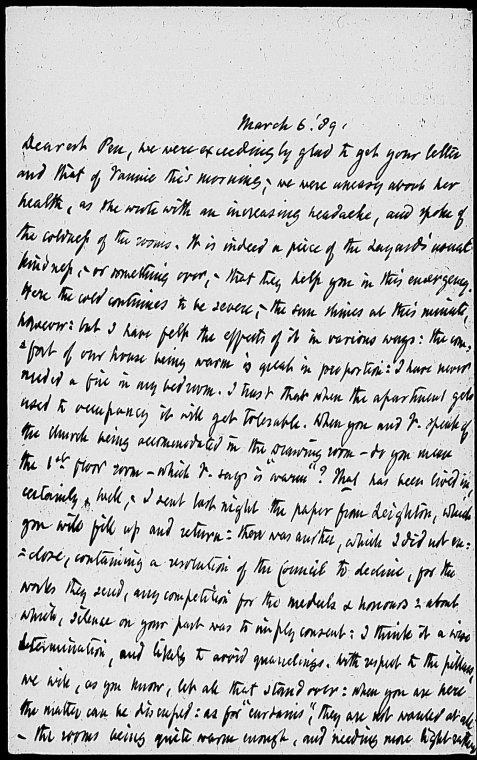 March 6. '89.
Dearest Pen, we were exceedingly glad to get your letter
and that of Fannie this morning, - we were uneasy about her
health, as she wrote with an increasing headache, and spoke of
the coldness of the rooms. It is indeed a piece of the Layards' usual
kindness, - or something over, - that they help you in this emergency.
Here the cold continues to be severe, - the sun shines at this minute,
however: but I have felt the effects of it in various ways: the com-
=fort of our house being warm is great in proportion: I have never
needed a fire in my bedroom. I trust that when the apartment gets
used to occupancy it will get tolerable. When you and F. speak of
the church being accommodated in the drawing room - do you mean
the 1st floor room - which F. says is "warm"? That has been lived in,
certainly. Well, - I sent last night the paper from Leighton, which
you will fill up and return: there was another, which I did not en=
=close, containing a resolution of the Council to decline, for the
works they send, any competition for the medals & honours: about
which, silence on your part was to imply consent: I think it a wise
determination, and likely to avoid quarrelings. With respect to the pillars,
we will, as you know, let all that stand over: when you are here
the matter can be discussed: as for "curtains", they are not wanted at all
- the rooms being quite warm enough, and needing more light rather